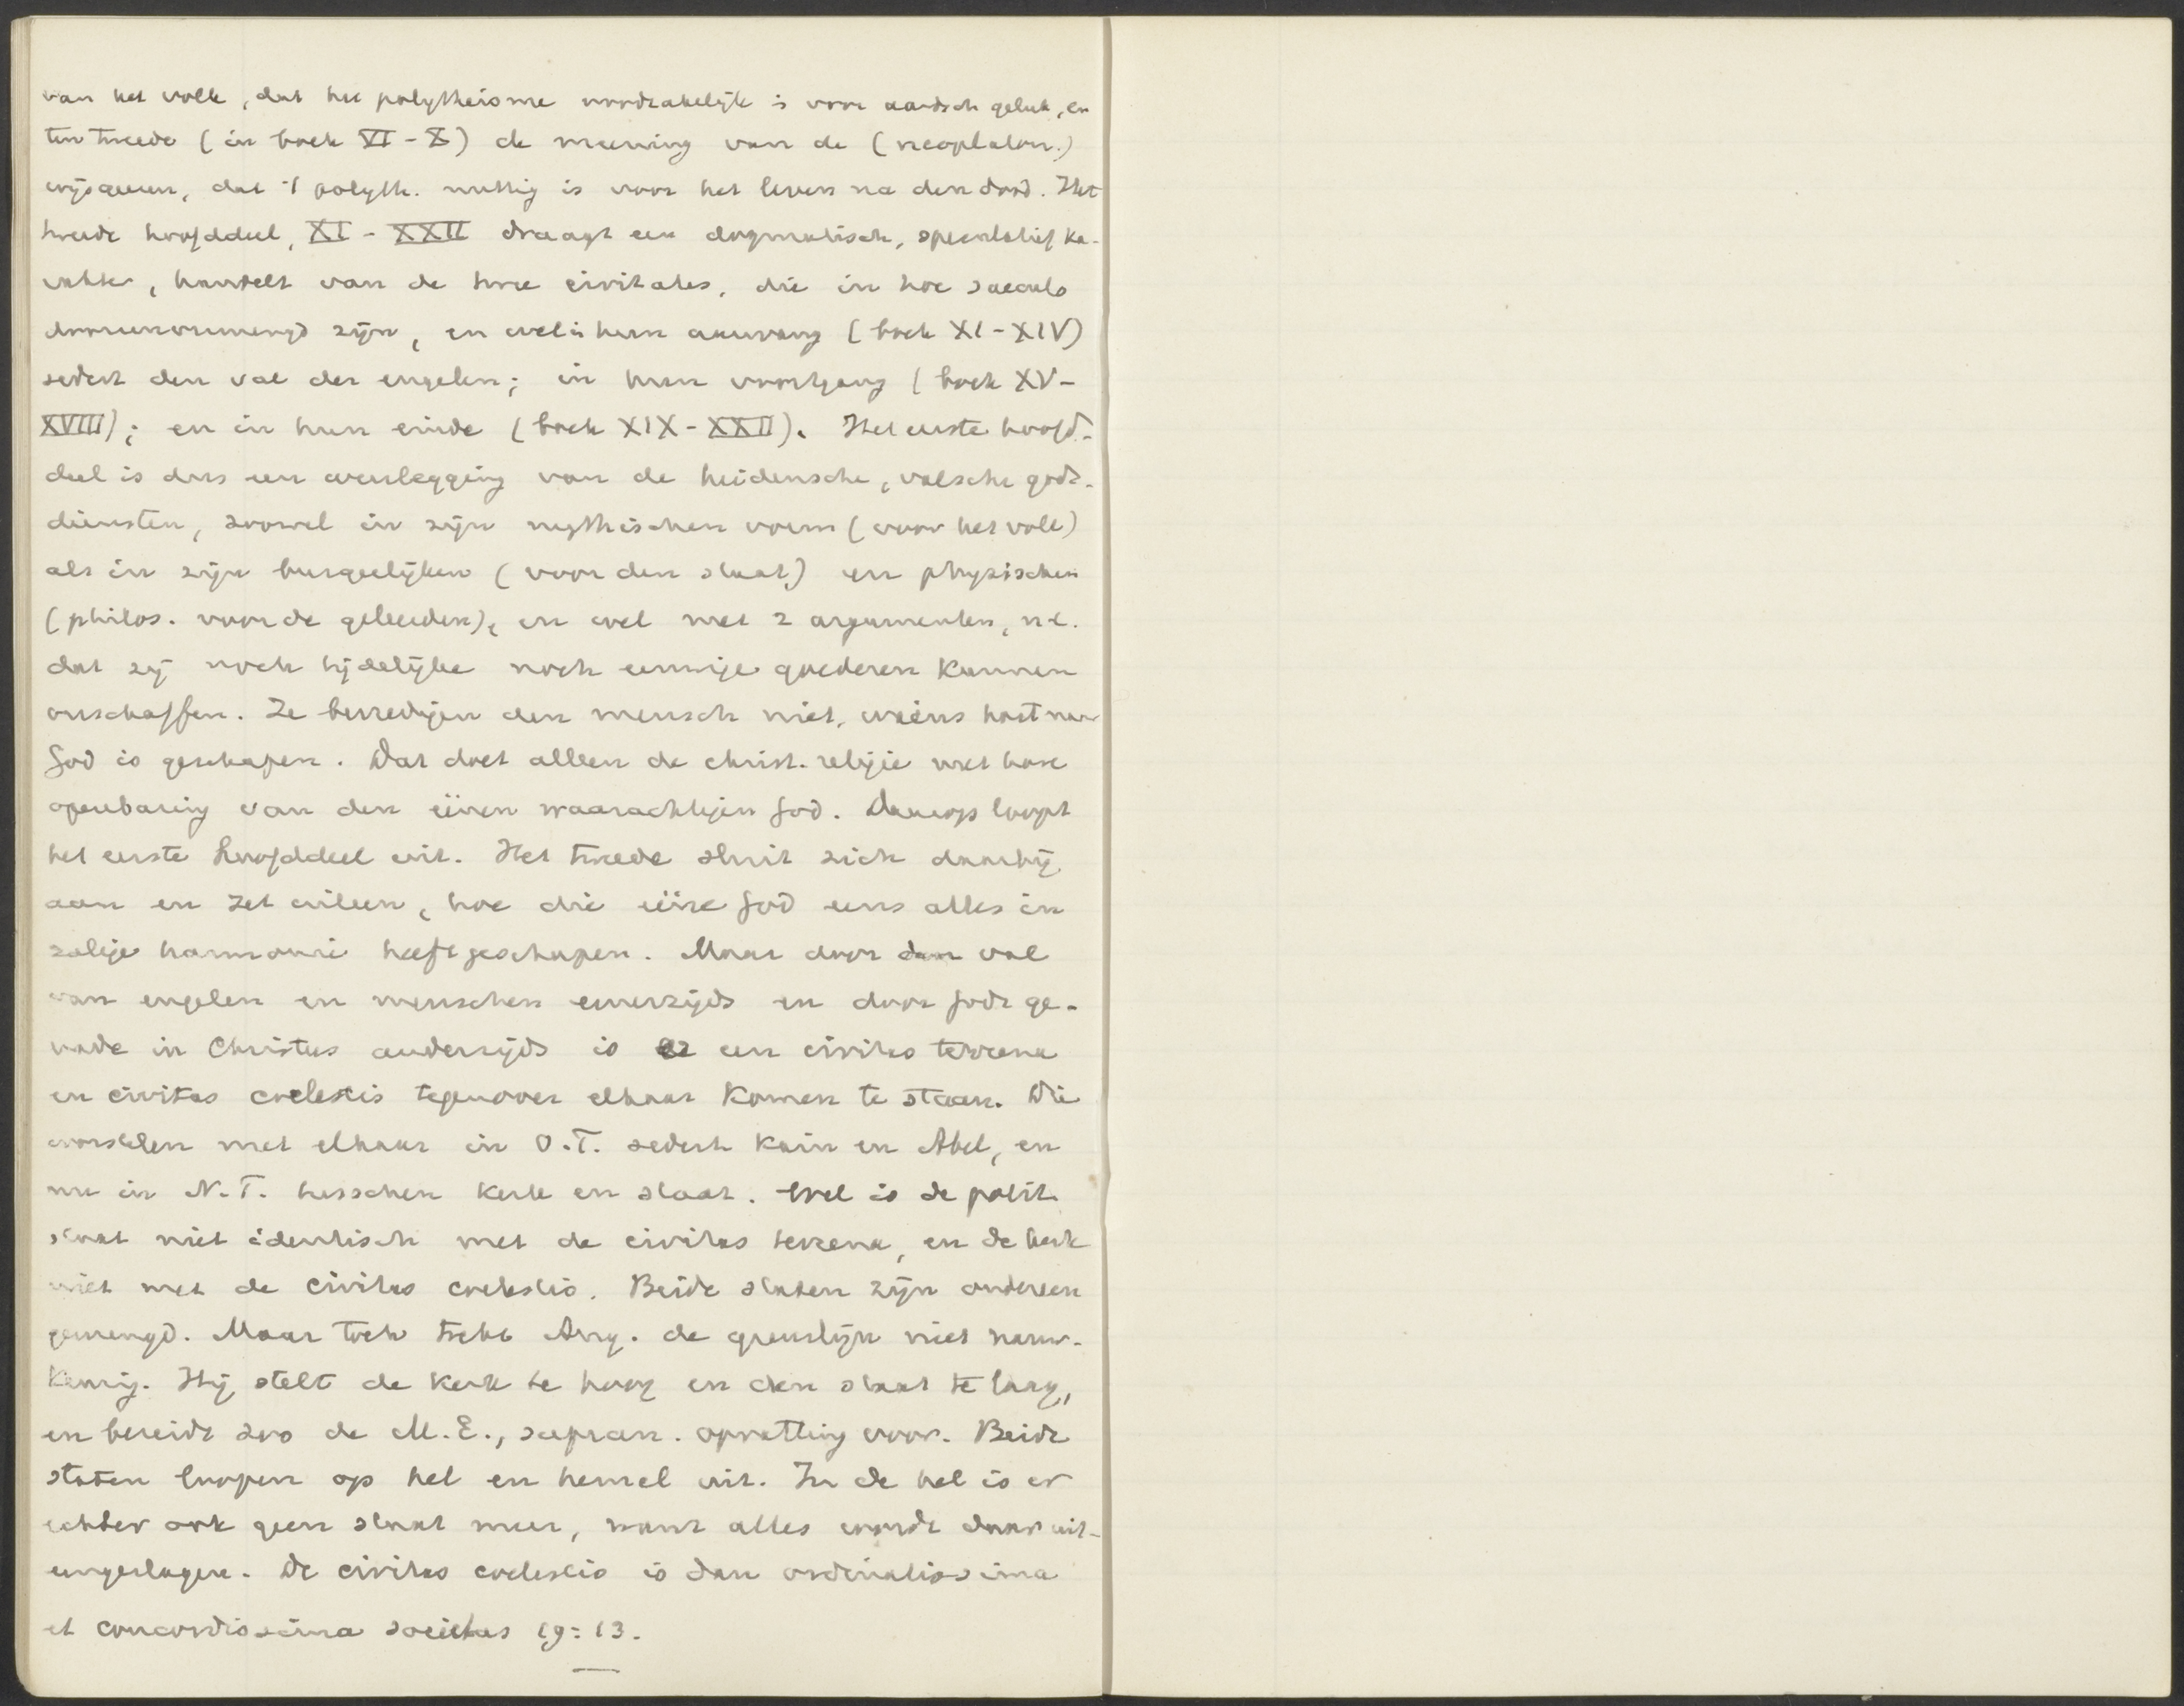 van het volk, dat het polytheisme noodzakelijk is voor aardsch geluk, en
ten tweede (in boek VI - X) de meening van de (neoplaton.)
wijsgeeren, dat 't polyth. nuttig is voor het leven na den dood. Het
tweede hoofddeel, XI - XXII draagt een dogmatisch, speculatief ka-
rakter, handelt van de twee civitates, die in hoc saeculo
dooreengemengd zijn, en wel in hun aanvang (boek XI - XIV)
sedert den val der engelen; in hun voortgang (boek XV -
XVIII); en in hun einde (boek XIX - XXII). Het eerste hoofd-
deel is dus een weerlegging van de heidensche, valsche gods-
diensten, zoowel in zijn mythischen vorm (voor het volk)
als in zijn burgerlijken (voor den staat) en physischen
(philos. voor de geleerden), en wel met 2 argumenten, n.l.
dat zij noch tijdelijke noch eeuwige goederen kunnen
verschaffen. Ze bevredigen den mensch niet, wiens hart naar
God is geschapen. Dat doet alleen de christ. religie met hare
openbaring van den éénen waarachtigen God. Daarop loopt
het eerste hoofddeel uit. Het tweede sluit zich daarbij
aan en zet uiteen, hoe die ééne God eens alles in
zalige harmonie heeft geschapen. Maar door den val
van engelen en menschen eenerzijds en door Gods ge-
nade in Christus anderzijds is er een civitas terrena
en civitas coelestis tegenover elkaar komen te staan. Die
worstelen met elkaar in O.T. sedert Kain en Abel, en
nu in N.T. tusschen kerk en staat. Wel is de polit.
staat niet identisch met de civitas terrena, en de kerk
niet met de civitas coelestis. Beide staten zijn ondereen
gemengd. Maar toch trekt Aug. de grenslijn niet nauw-
keurig. Hij stelt de kerk te hoog en den staat te laag,
en bereidt zoo de M.E., supran. opvatting voor. Beide
staten loopen op hel en hemel uit. In de hel is er
echter ook geen staat meer, want alles wordt daar uit-
eengeslagen. De civitas coelestis is dan ordinatissima
et concordissima societas 19:13.